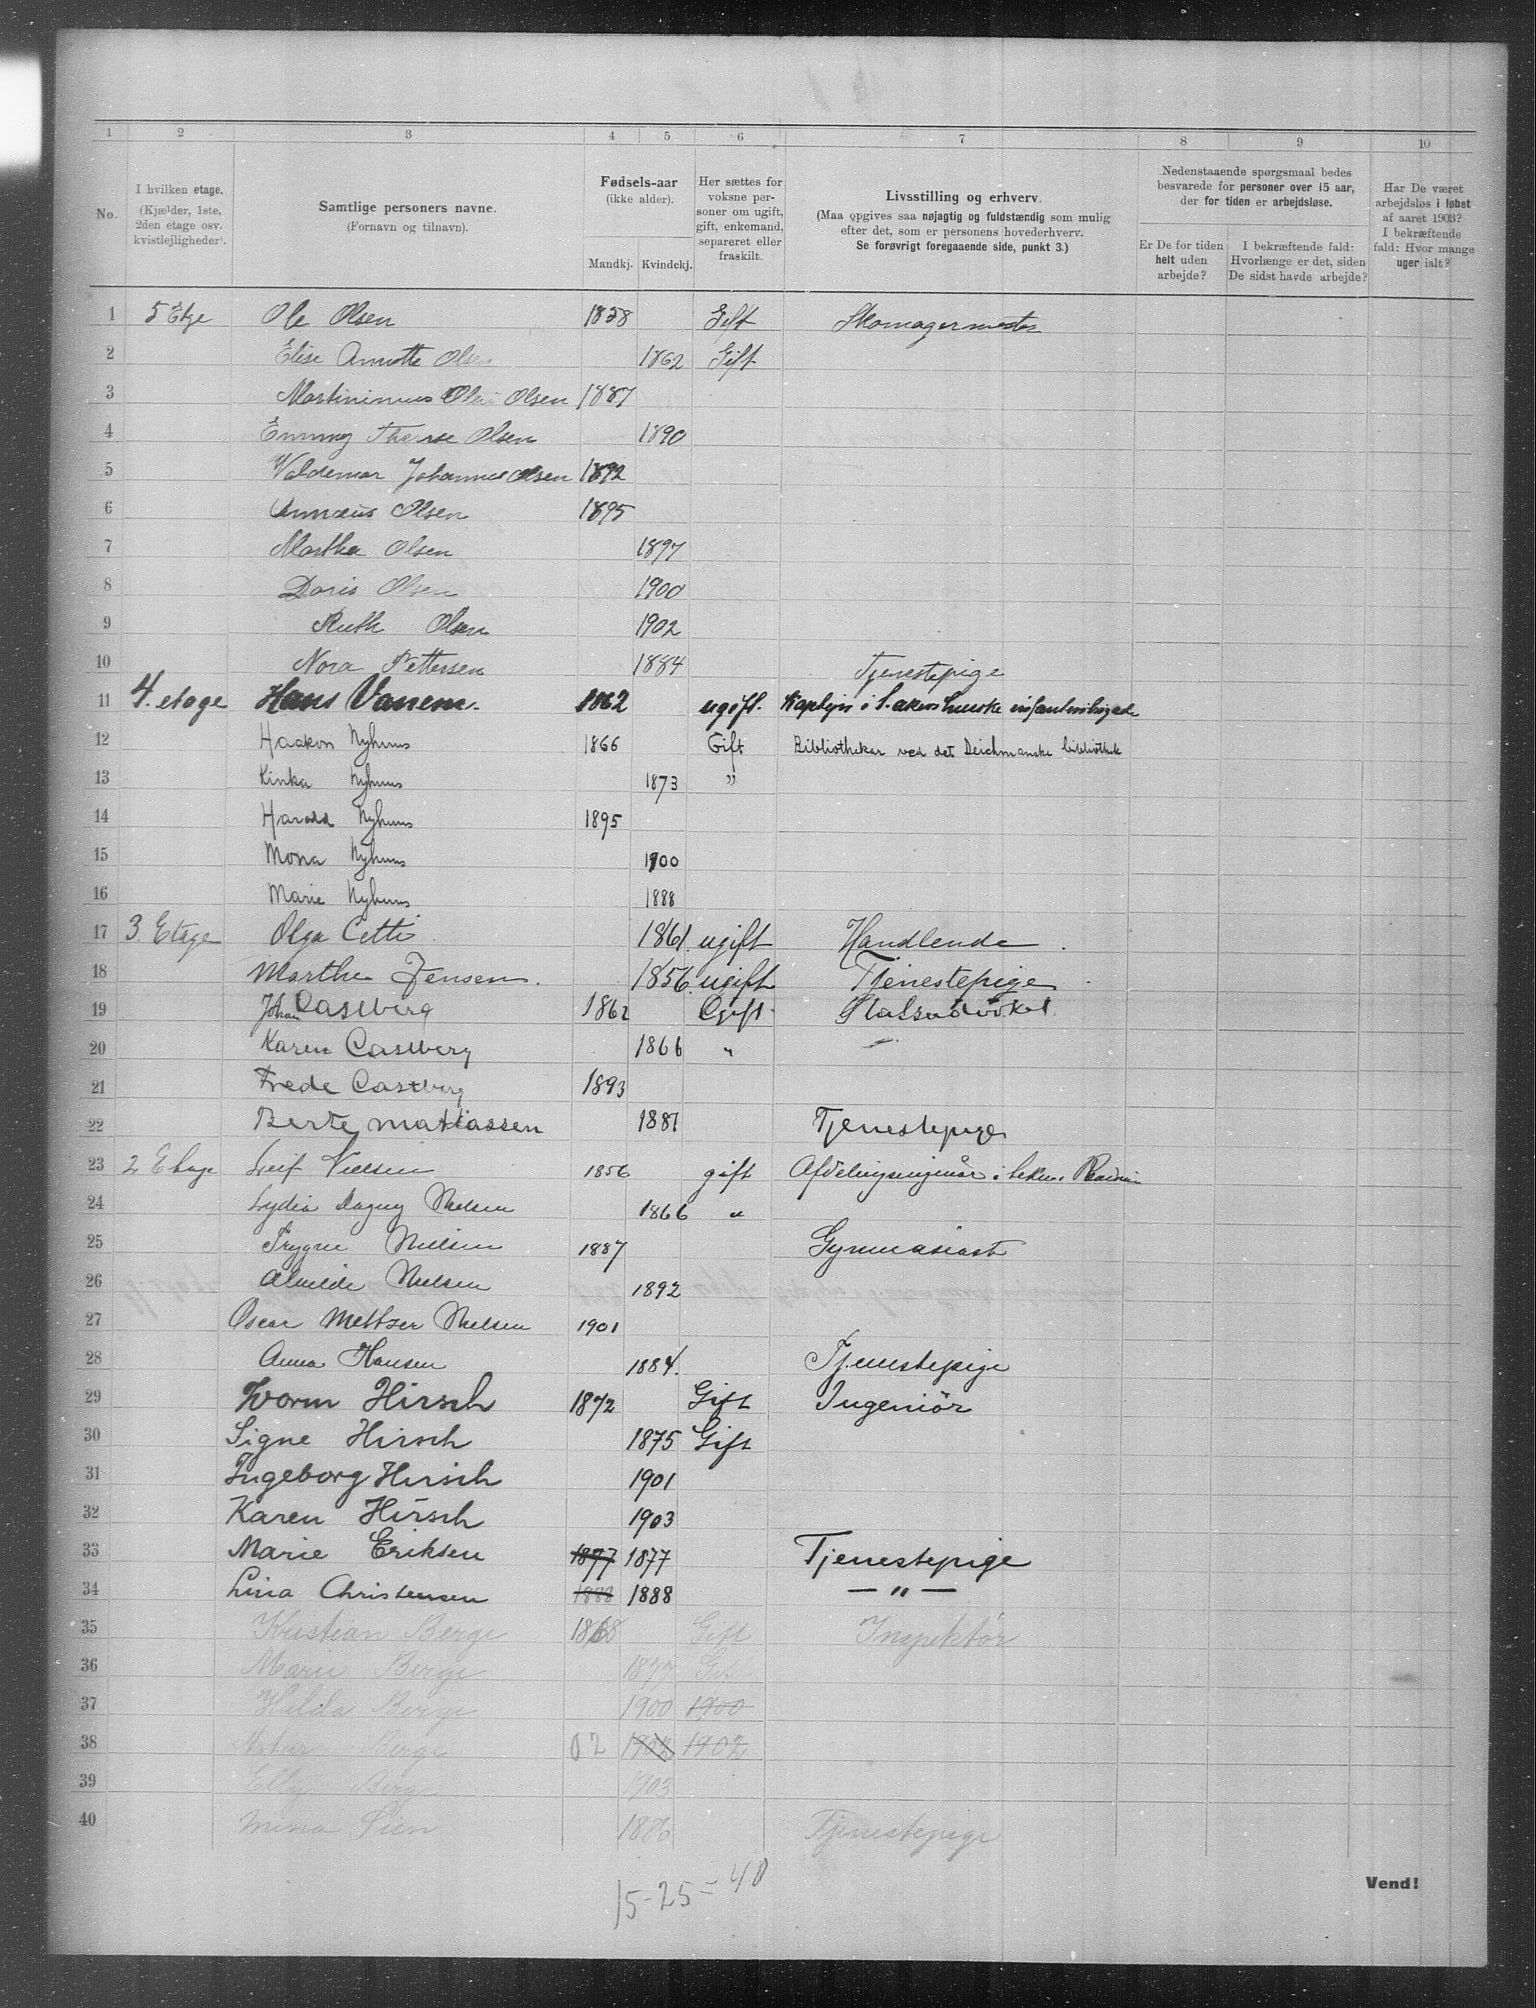 1 2 3 4 5 6 7 8 9 10
No.
I hvilken etage.
(Kjælder, 1ste,
2den etage osv.
kvistlejligheder).
Samtlige personers navne.
(Fornavn og tilnavn).
Fødsels-aar
(ikke alder).
Mandkj. Kvindekj.
Her sættes for
voksne per-
soner om ugift,
gift, enkemand,
separeret eller
fraskilt.
Livsstilling og erhverv.
(Maa opgives saa nøjagtig og fuldstændig som mulig
efter det, som er personens hovederhverv.
Se forøvrigt foregaaende side, punkt 3.)
Nedenstaaende spørgsmaal bedes
besvarede for personer over 15 aar,
der for tiden er arbejdsløse.
Er De for tiden
helt uden
arbejde?
I bekræftende fald:
Hvorlænge er det, siden
De sidst havde arbejde?
Har De været
arbejdsløs i løbet
af aaret 1903?
I bekræftende
fald: Hvor mange
uger ialt?
1 5 Etge Ole Olsen 1858 Gift Skomagermester
2 Elise Annette Olsen 1862 Gift
3 Martinimus Olai Olsen 1887
4 Emmy Therese Olsen 1890
5 Valdemar Johannes Olsen 1892
6 Annæus Olsen 1895
7 Martha Olsen 1897
8 Doris Olsen 1900
9 Ruth Olsen 1902
10 Nora Pettersen 1884 Tjenestepige
11 4. etage Hans Vanem. 1862 ugift. Kaptejn i S. akershuuske infanteribrigade
12 Haakon Nyhuus 1866 Gift Bibliothekar ved det Deichmanske bibliothek
13 Kinka Nyhuus 1873 "
14 Harald Nyhuus 1895
15 Mona Nyhuus 1900
16 Marie Nyhuus 1888
17 3 Etage Olga Cetti 1861. ugift Handlende
18 Marthe Jensen. 1856. ugift Tjenestepige
19 Johan Castberg 1862 Gift Statsadvokat.
20 Karen Castberg 1866 "
21 Frede Castberg 1893
22 Berte Mattiassen 1881 Tjenestepige
23 2 Etage Leif Nielsen 1856 gift Afdelingsingeniør i
24 Lydia Dagny Nielsen 1866 "
25 Trygve Nielsen 1887 Gymnasiast
26 Alvilde Nielsen 1892
27 Oscar Meltzer Nielsen 1901
28 Anna Hansen 1884. Tjenestepige
29 Worm Hirsch 1872 Gift Ingeniör
30 Signe Hirsch 1875 Gift
31 Ingeborg Hirsch 1901
32 Karen Hirsch 1903
33 Marie Eriksen 1877 1877 Tjenestepige
34 Lina Christensen 1888 1888 — " —
35 Kristian Berge 1868 Gift Inspektør
36 Marie Berge 1877 Gift
37 Hilda Berge 1900 1900
38 Berge 02 1902 1902
39 Elly Berge 1903
40 Mina Sien 1886 Tjenestepige
Vend!
15-25=40